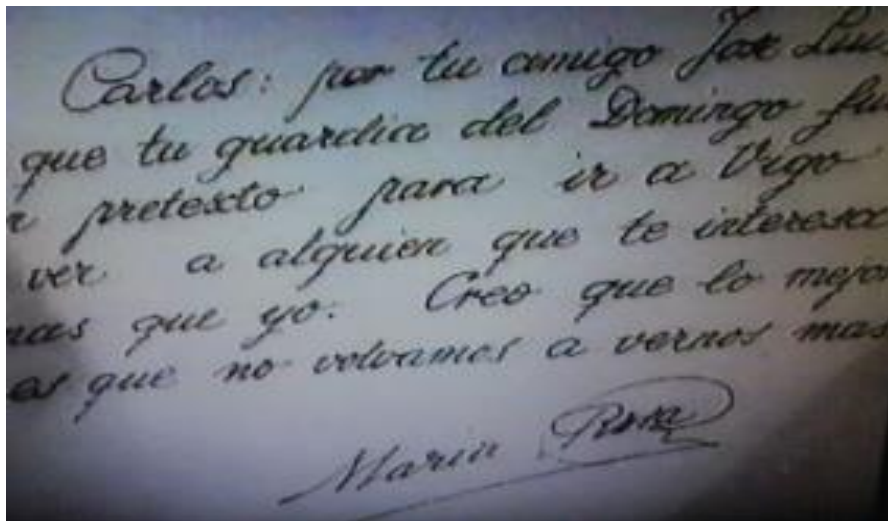 Carlos: por tu amigo Jose Luis
que tu guardia del Domingo fu
pretexto para ir a Vigo
ver a alguien que te interesa
mas que yo. Creo que lo mejor
es que no volvamos a vernos mas
Maria Rosa